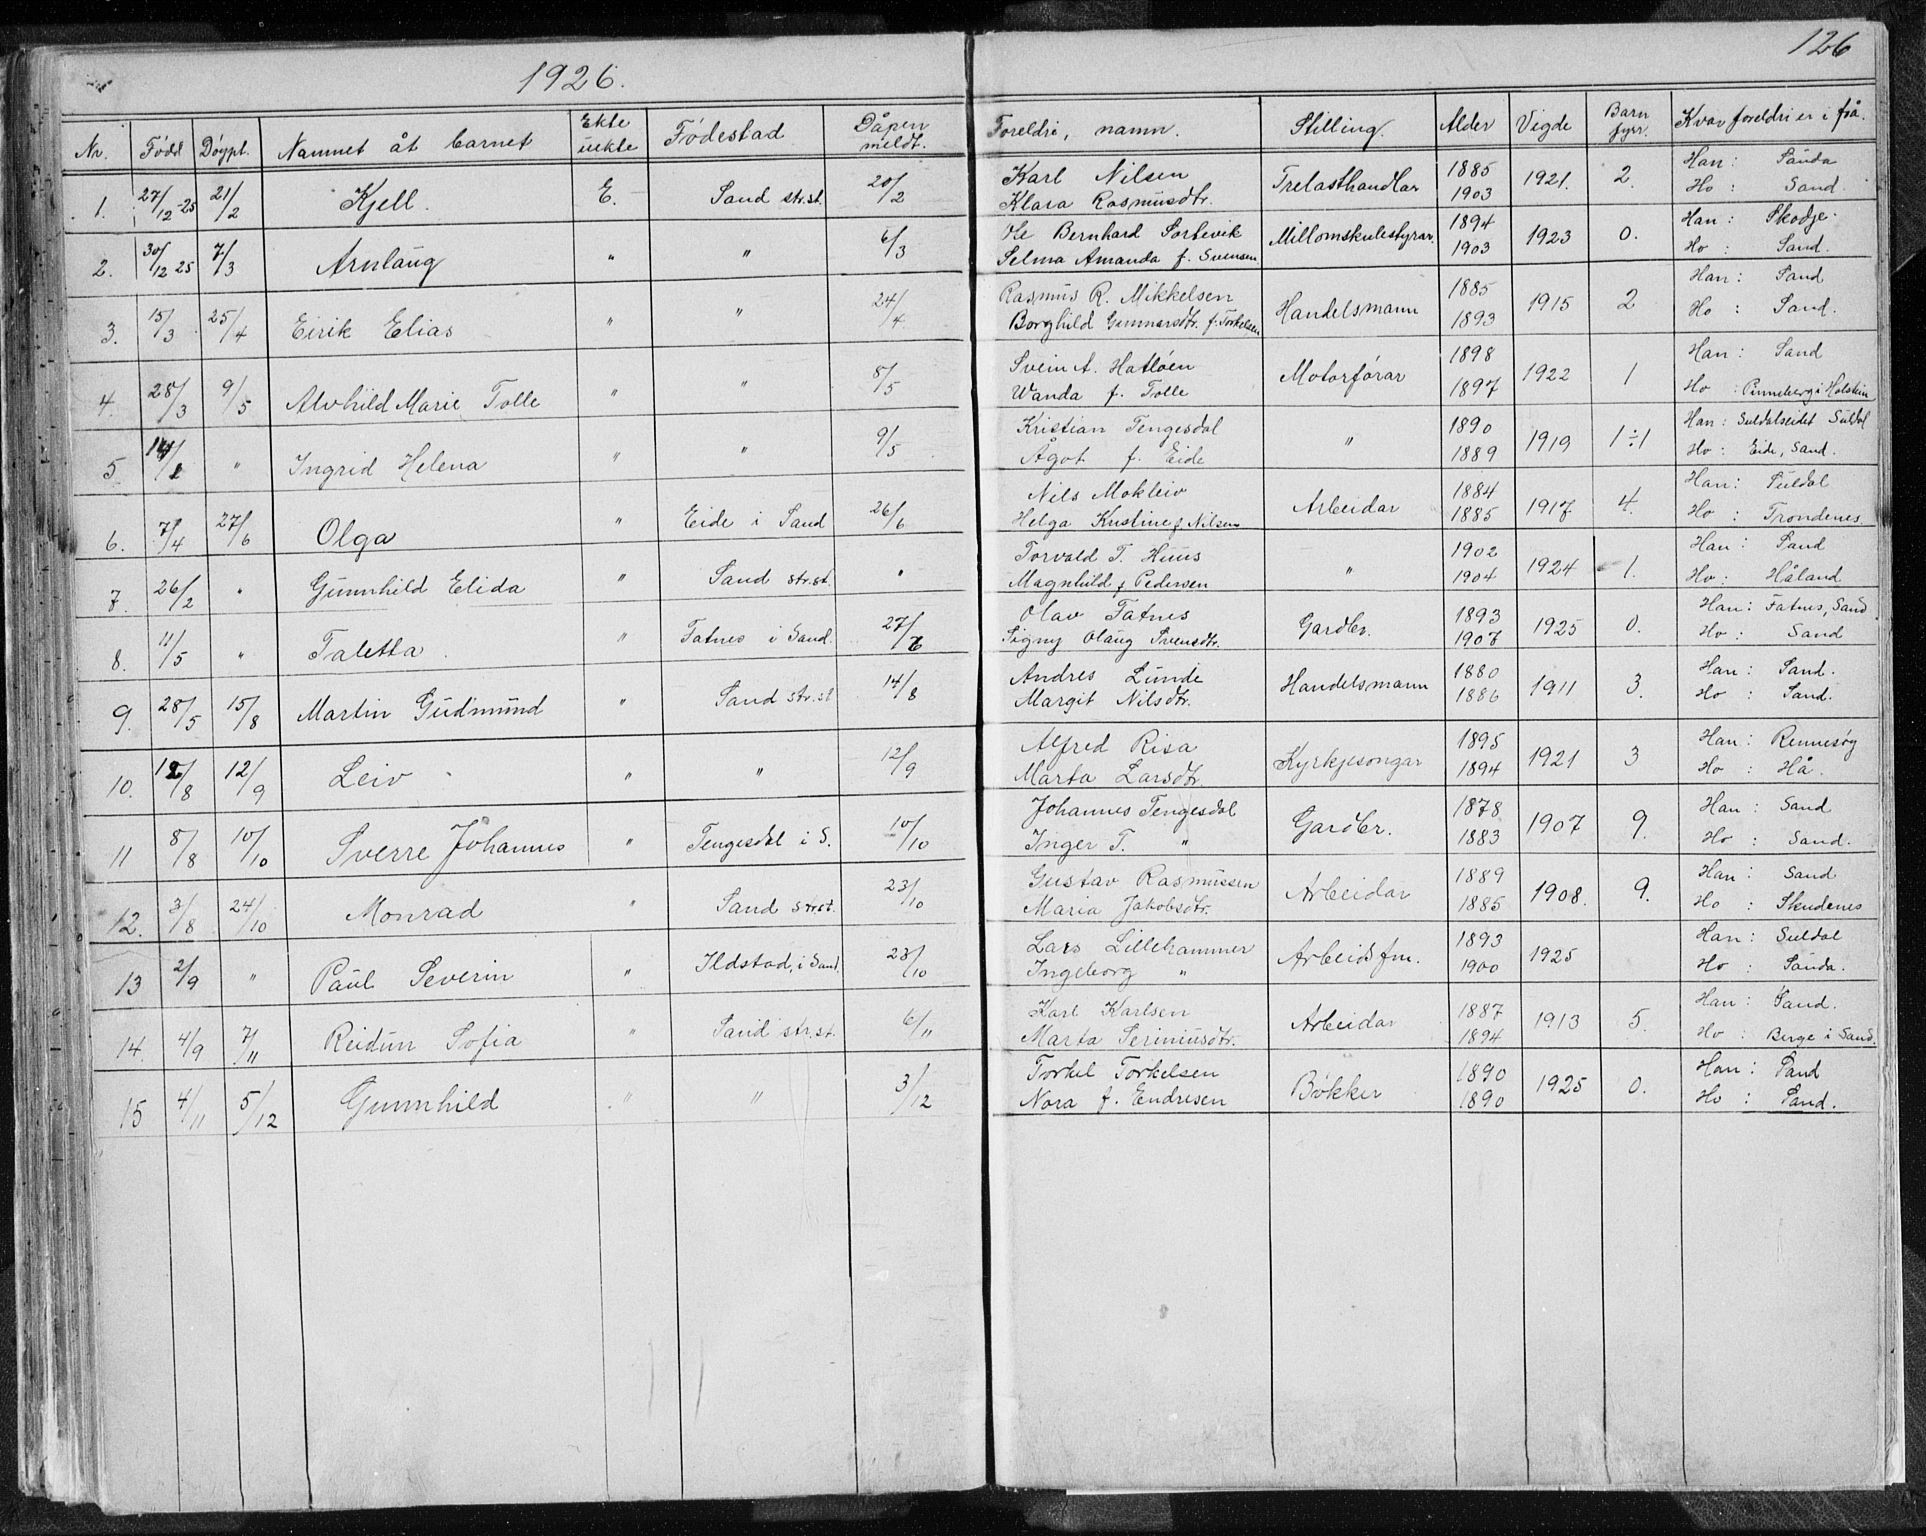 1926.
126
Nr. Fødd Døypt. Namnet åt barnet Ekte uekte Fødestad Dåpen meldt. Foreldre, namn. Stilling. Alder Vigde Barn fyrr. Kvar foreldri er i frå.
1. 27/12-25 21/2 Kjell. E. Sand str.st. 20/2 Karl Nilsen Trelasthandlar 1885 1921. 2. Han: Sauda
Klara Rasmusdtr. 1903 Ho: Sand.
2. 30/12 25 7/3 Arnlaug " " 6/3 Ole Bernhard Sortevik Millomskulestyrar. 1894 1923 0. Han: Skodje.
Selma Amanda f. Svensen 1903 Ho: Sand.
3. 15/3 25/4 Eirik Elias " " 24/4 Rasmus R. Mikkelsen Handelsmann 1885 1915 2 Han: Sand
Borghild Gunnarsdtr. f. Torkelsen 1893 Ho: Sand.
4. 28/3 9/5 Alvhild Marie Tolle " " 8/5 Svein A. Hatløen Motorførar 1898 1922 1 Han: Sand
Wanda f. Tolle 1897 Ho: Pinneberg i Holstein
5 " Ingrid Helena " " 9/5 Kristian Tengesdal " 1890 1919 1÷1 Han: Suldalseidet Suldal
Ågot f. Eide 1889 Ho: Eide, Sand.
6. 7/4 27/6 Olga " Eide i Sand 26/6 Nils Mokleiv Arbeidar 1884 1917 4. Han: Suldal
Helga Kristine f. Nilsen 1885 Ho: Trondenes
7. 26/2 " Gunnhild Elida " Sand str.st. " Torvald T. Huus " 1902 1924 1. Han: Sand
Magnhild f. Pedersen 1904 Ho: Håland
8. 11/5 " Taletta. " Fatnes i Sand. 27/6 Olav Fatnes Gardbr. 1893 1925 0. Han: Fatnes, Sand
Signy Olaug Svensdtr. 1907 Ho: Sand
9. 28/5 15/8 Martin Gudmund " Sand str.st 14/8 Andres Lunde Handelsmann 1880 1911 3. Han: Sand.
Margit Nilsdtr. 1886 Ho: Sand.
10. 12/8 12/9 Leiv " " 12/9 Alfred Risa Kyrkjesongar 1895 1921 3 Han: Rennesøy
Marta Larsdtr. 1894 Ho: Hå.
11 8/8 10/10 Sverre Johannes " Tengesdal i S. 10/10 Johannes Tengesdal Gardbr. 1878 1907 9. Han: Sand
Inger T. " 1883 Ho: Sand.
12. 3/8 24/10 Monrad " Sand str.st. 23/10 Gustav Rasmussen Arbeidar 1889 1908. 9. Han: Sand
Maria Jakobsdtr. 1885 Ho: Skudenes
13 2/9 " Paul Severin " Ildstad, i Sand. 23/10 Lars Lillehammer Arbeidsfm. 1893 1925 Han: Suldal
Ingeborg " 1900 Ho: Sauda.
14. 4/9 7/11 Reidun Sofia " Sand str.st. 6/11 Karl Karlsen Arbeidar 1887 1913 5. Han: Sand.
Marta Seriniusdtr. 1894 Ho: Berge i Sand.
15 4/11 5/12 Gunnhild " " 3/12 Torkel Torkelsen Bøkker 1890 1925 0. Han: Sand
Nora f. Endresen 1890 Ho: Sand.